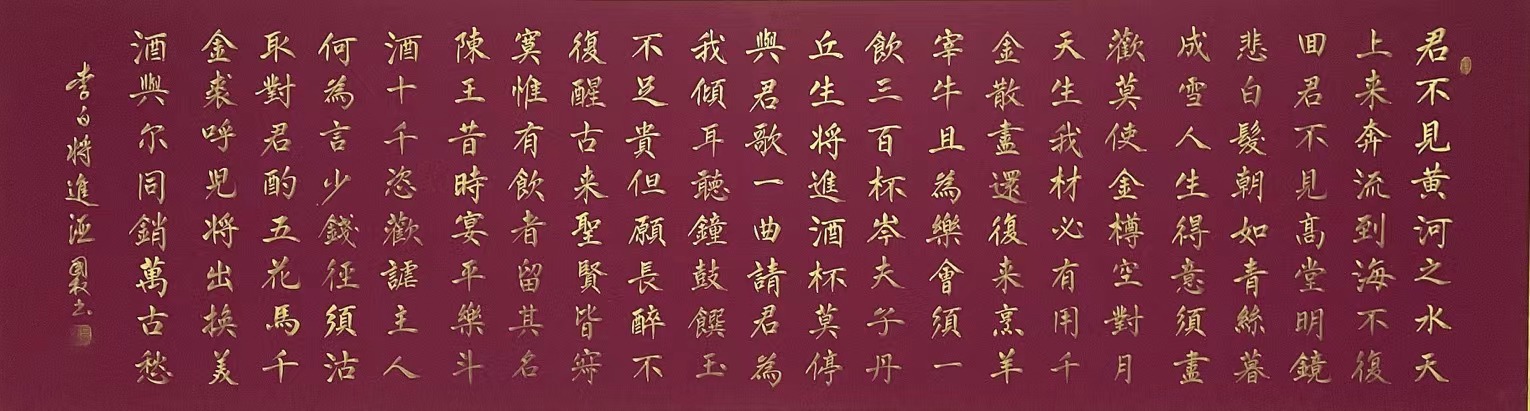 君不見黄河之水天
上来奔流到海不復
囬君不見高堂明鏡
悲白髮朝如青絲暮
成雪人生得意須盡
歡莫使金樽空對月
天生我材必有用千
金散盡還復来烹羊
宰牛且為樂會須一
飲三百杯岑夫子丹
丘生将進酒杯莫停
與君歌一曲請君為
我傾耳聽鐘鼓饌玉
不足貴但願長醉不
復醒古来聖賢皆寂
寞惟有飲者留其名
陳王昔時宴平樂斗
酒十千恣歡謔主人
何為言少錢徑須沽
取對君酌五花馬千
金裘呼児将出換美
酒與尔同銷萬古愁
李白将進酒